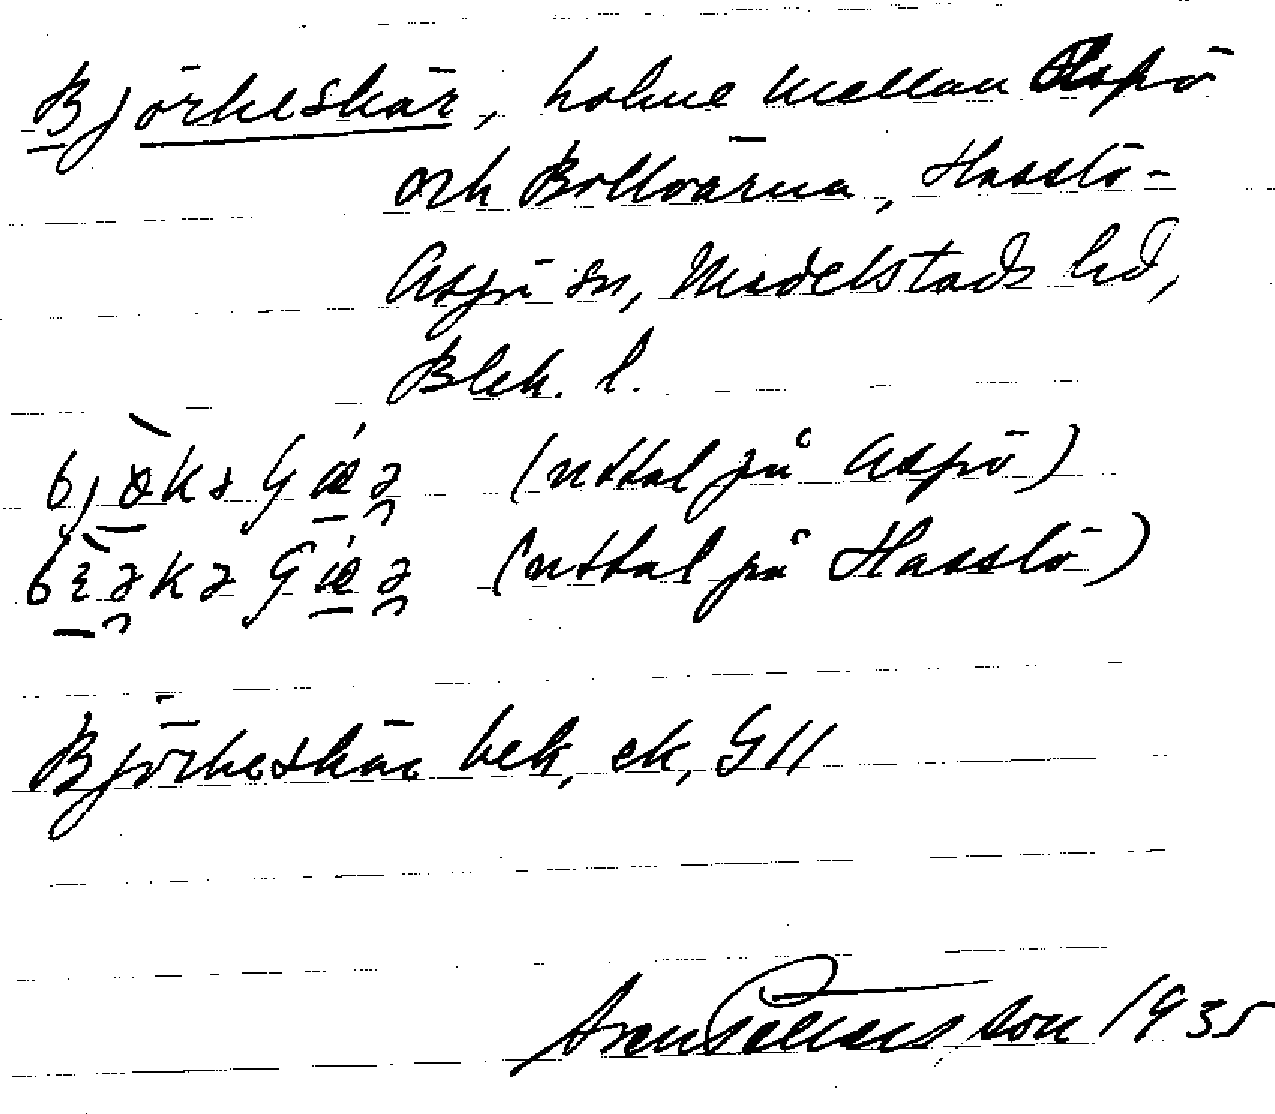 Björkeskär, holme mellan Aspö
och Bollöarna, Hasslö-
Aspö sn, Medelstads hd,
Blek. l.
(uttal på Aspö)
(uttal på Hasslö)
Björkeskär bek, ek, G11
Sven Pettersson 1935